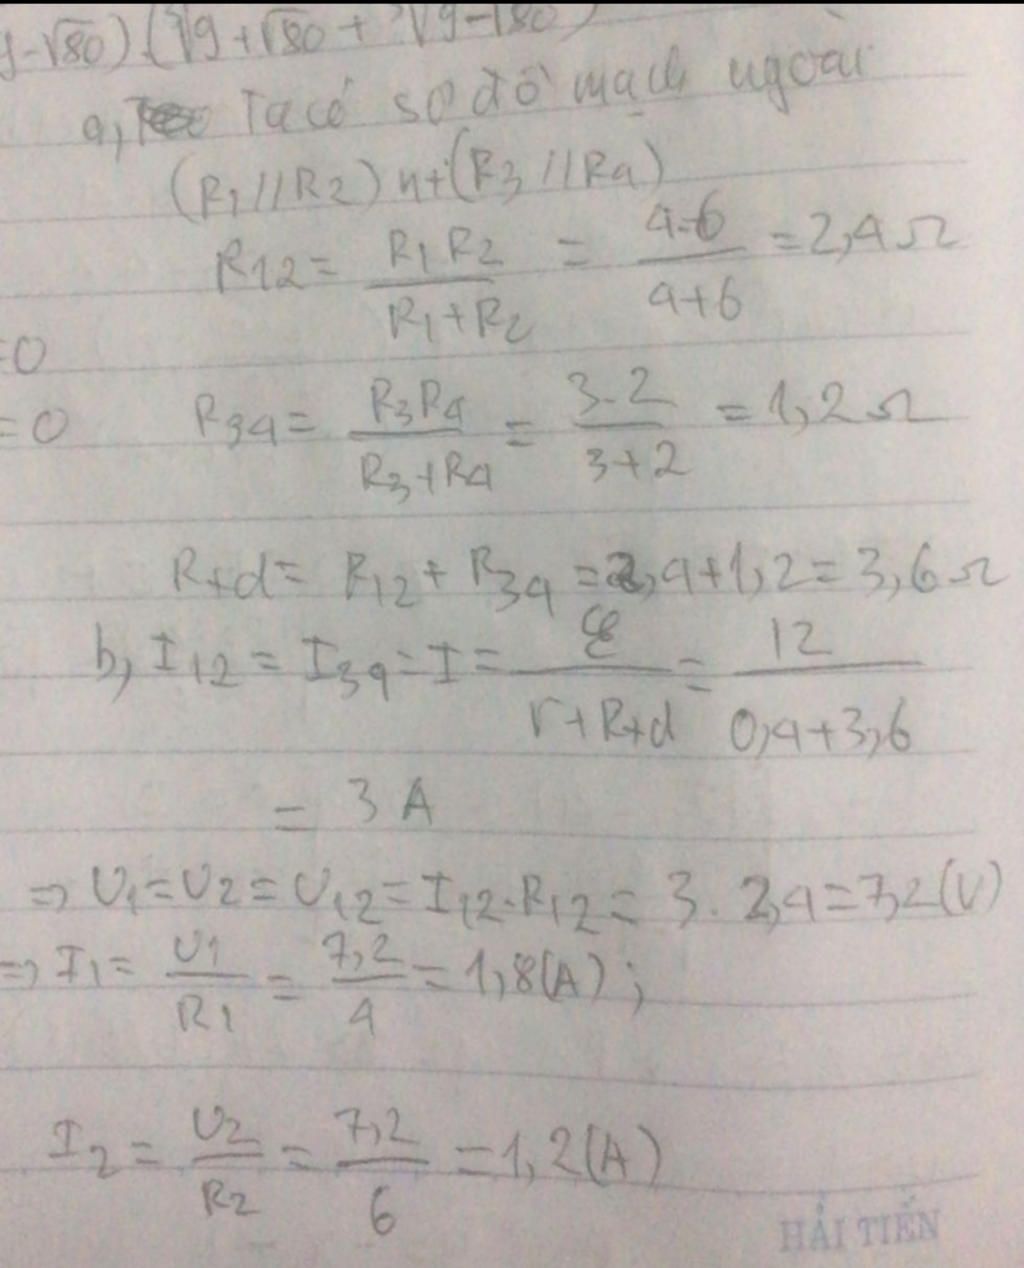 y-√80).(∛9+√80 + ∛9-√80)
a, Ta có sơ đồ mạch ngoài
(R1//R2) nt (R3//R4)
R12 = R1R2/(R1+R2) = 4.6/(4+6) = 2,4Ω
=0
=0 R34 = R3R4/(R3+R4) = 3.2/(3+2) = 1,2Ω
Rtđ = R12 + R34 = 2,4+1,2 = 3,6Ω
b, I12 = I34 = I = ℰ/(r+Rtđ) = 12/(0,4+3,6)
= 3 A
=> U1=U2=U12=I12.R12 = 3. 2,4=7,2(V)
=> I1 = U1/R1 = 7,2/4 = 1,8(A);
I2 = U2/R2 = 7,2/6 = 1,2(A)
HẢI TIẾN